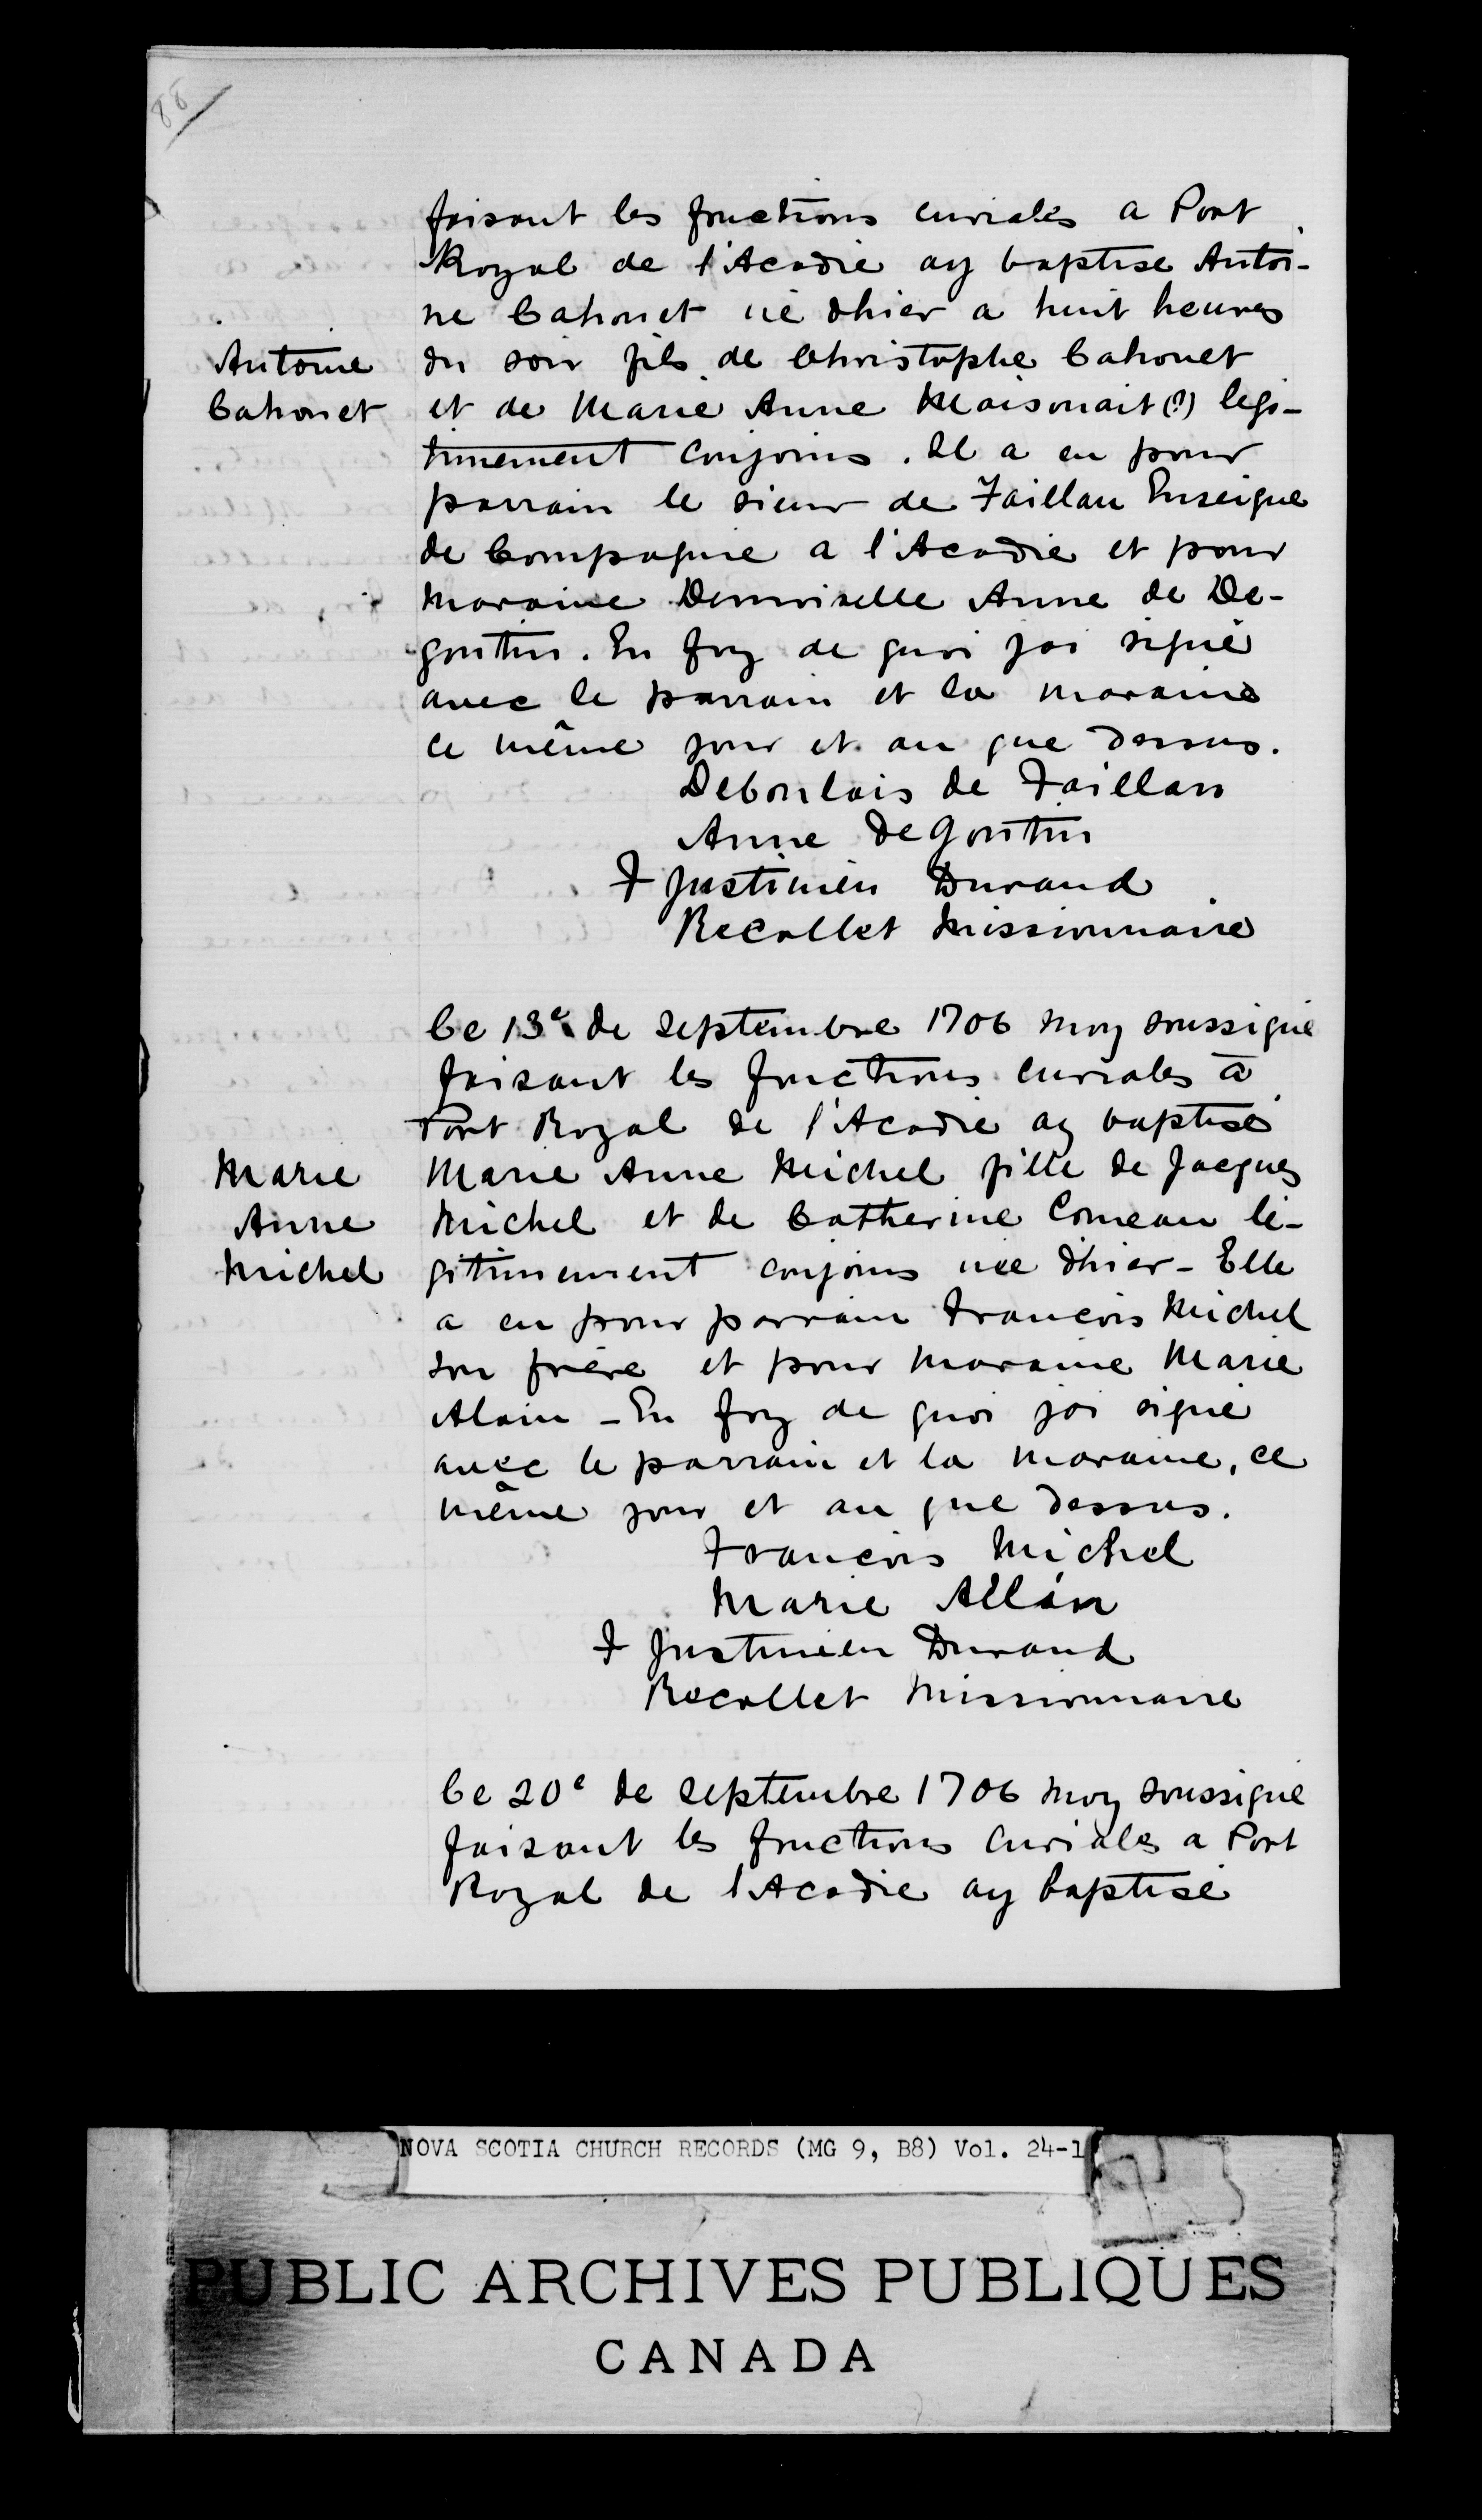 88
faisant les fonctions curiales a Port
Royal de l'Acadie ay baptise Antoi-
ne Cahouet né dhier a huit heures
Antoine
Cahouet
du soir fils de Christophe Cahouet
et de Marie Anne Maisonait (?) legi-
timement conjoins. Il a eu pour
parrain le sieur de Faillan Enseigne
de Compagnie a l'Acadie et pour
maraine Demoiselle Anne de De-
goutin. En foy de quoi jai signé
avec le parrain et la maraine
ce même jour et an que dessus.
Deboulais de Faillan
Anne DeGoutin
F Justinien Durand
Recollet Missionnaire
Ce 13e de septembre 1706 moy soussigné
faisant les fonctions curiales à
Port Royal de l'Acadie ay baptisé
Marie
Anne
Michel
Marie Anne Michel fille de Jacques
Michel et de Catherine Comeau lé-
gitimement conjoins née d'hier - Elle
a eu pour parrain François Michel
son frère et pour maraine Marie
Alain - En foy de quoi jai signé
avec le parrain et la maraine, ce
même jour et an que dessus.
François Michel
Marie Allain
F Justinien Durand
Recollet Missionnaire
Ce 20e de septembre 1706 moy soussigné
faisant les fonctions curiales a Port
Royal de l'Acadie ay baptisé
NOVA SCOTIA CHURCH RECORDS (MG 9, B8) Vol. 24-1
PUBLIC ARCHIVES PUBLIQUES
CANADA